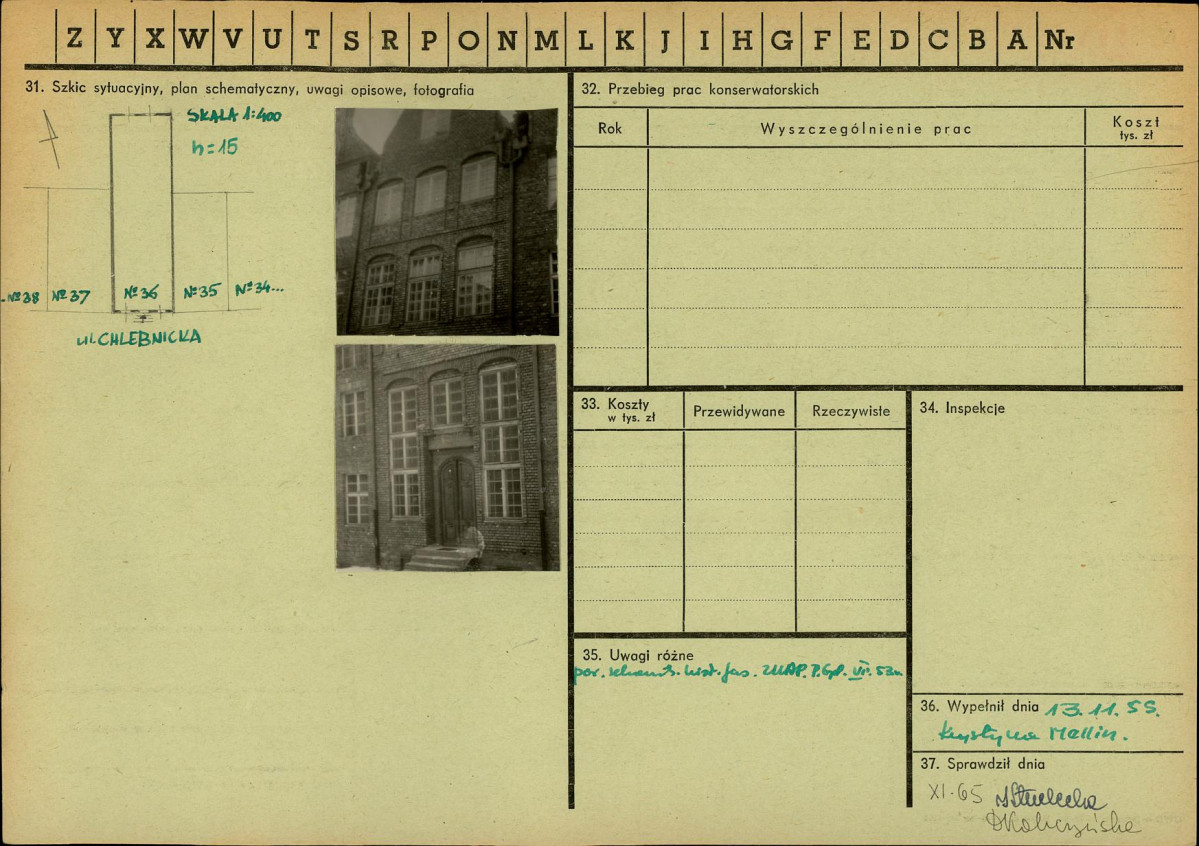 Z Y X W V U T S R P O N M L K J I H G F E D C B A Nr
31. Szkic sytuacyjny, plan schematyczny, uwagi opisowe, fotografia
SKALA 1:400
h=15
№38 №37 №36 №35 №34...
ul. CHLEBNICKA
32. Przebieg prac konserwatorskich
Rok Wyszczególnienie prac Koszt
tys. zł
33. Koszty
w tys. zł
Przewidywane Rzeczywiste
34. Inspekcje
35. Uwagi różne
por. hist. fas.
36. Wypełnił dnia 13.11.55.
Krystyna Mellin.
37. Sprawdził dnia
XI.65